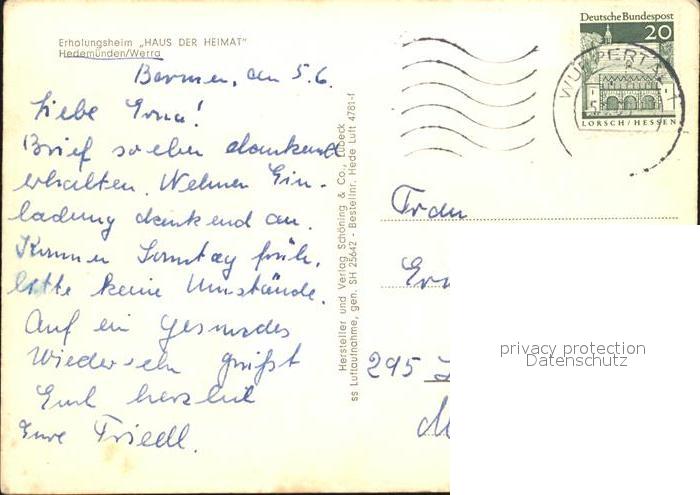 Erholungsheim „HAUS DER HEIMAT"
Hedemünden/Werra
Barmen, den 5.6.
Liebe Erna!
Brief soeben dankend
erhalten. Nehmen Ein-
ladung dankend an.
Kommen Sonntag früh,
bitte keine Umstände.
Auf ein gesundes
Wiedersehn grüßt
Euch herzlich
Eure Friedl.
Hersteller und Verlag Schöning & Co., Lübeck
ss Luftaufnahme, gen. SH 25642 - Bestellnr. Hede Luft 4781-f
Deutsche Bundespost
20
LORSCH/HESSEN
WUPPERTAL 1
Frau
295
privacy protection
Datenschutz